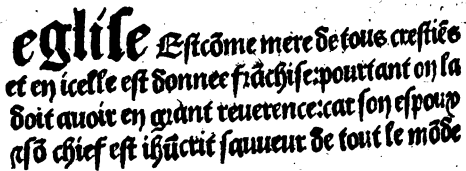 egliſe Eſt cōme mere de tous creſtiēs
et en icelle eſt donnee frāchiſe: pourtant on la
doit auoir en grant reuerence: car ſon eſpoux
⁊ ſō chief eſt ihūcriſt ſauueur de tout le mōde